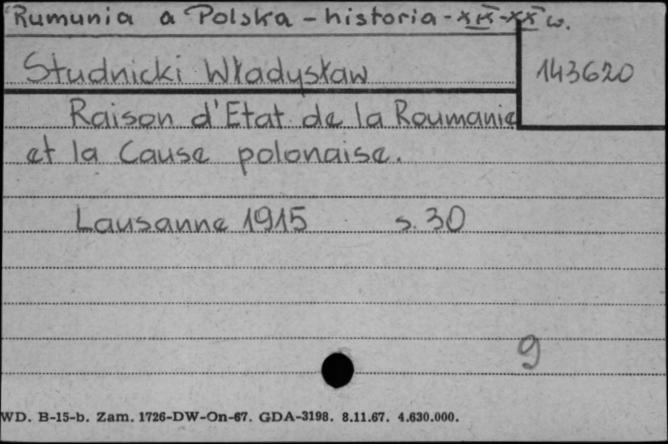 Rumunia a Polska - historia - XIX-XX w.
Studnicki Władysław
143620
Raison d'Etat de la Roumanie
et la Cause polonaise.
Lausanne 1915 s. 30
9
WD. B-15-b. Zam. 1726-DW-On-67. GDA-3198. 8.11.67. 4.630.000.